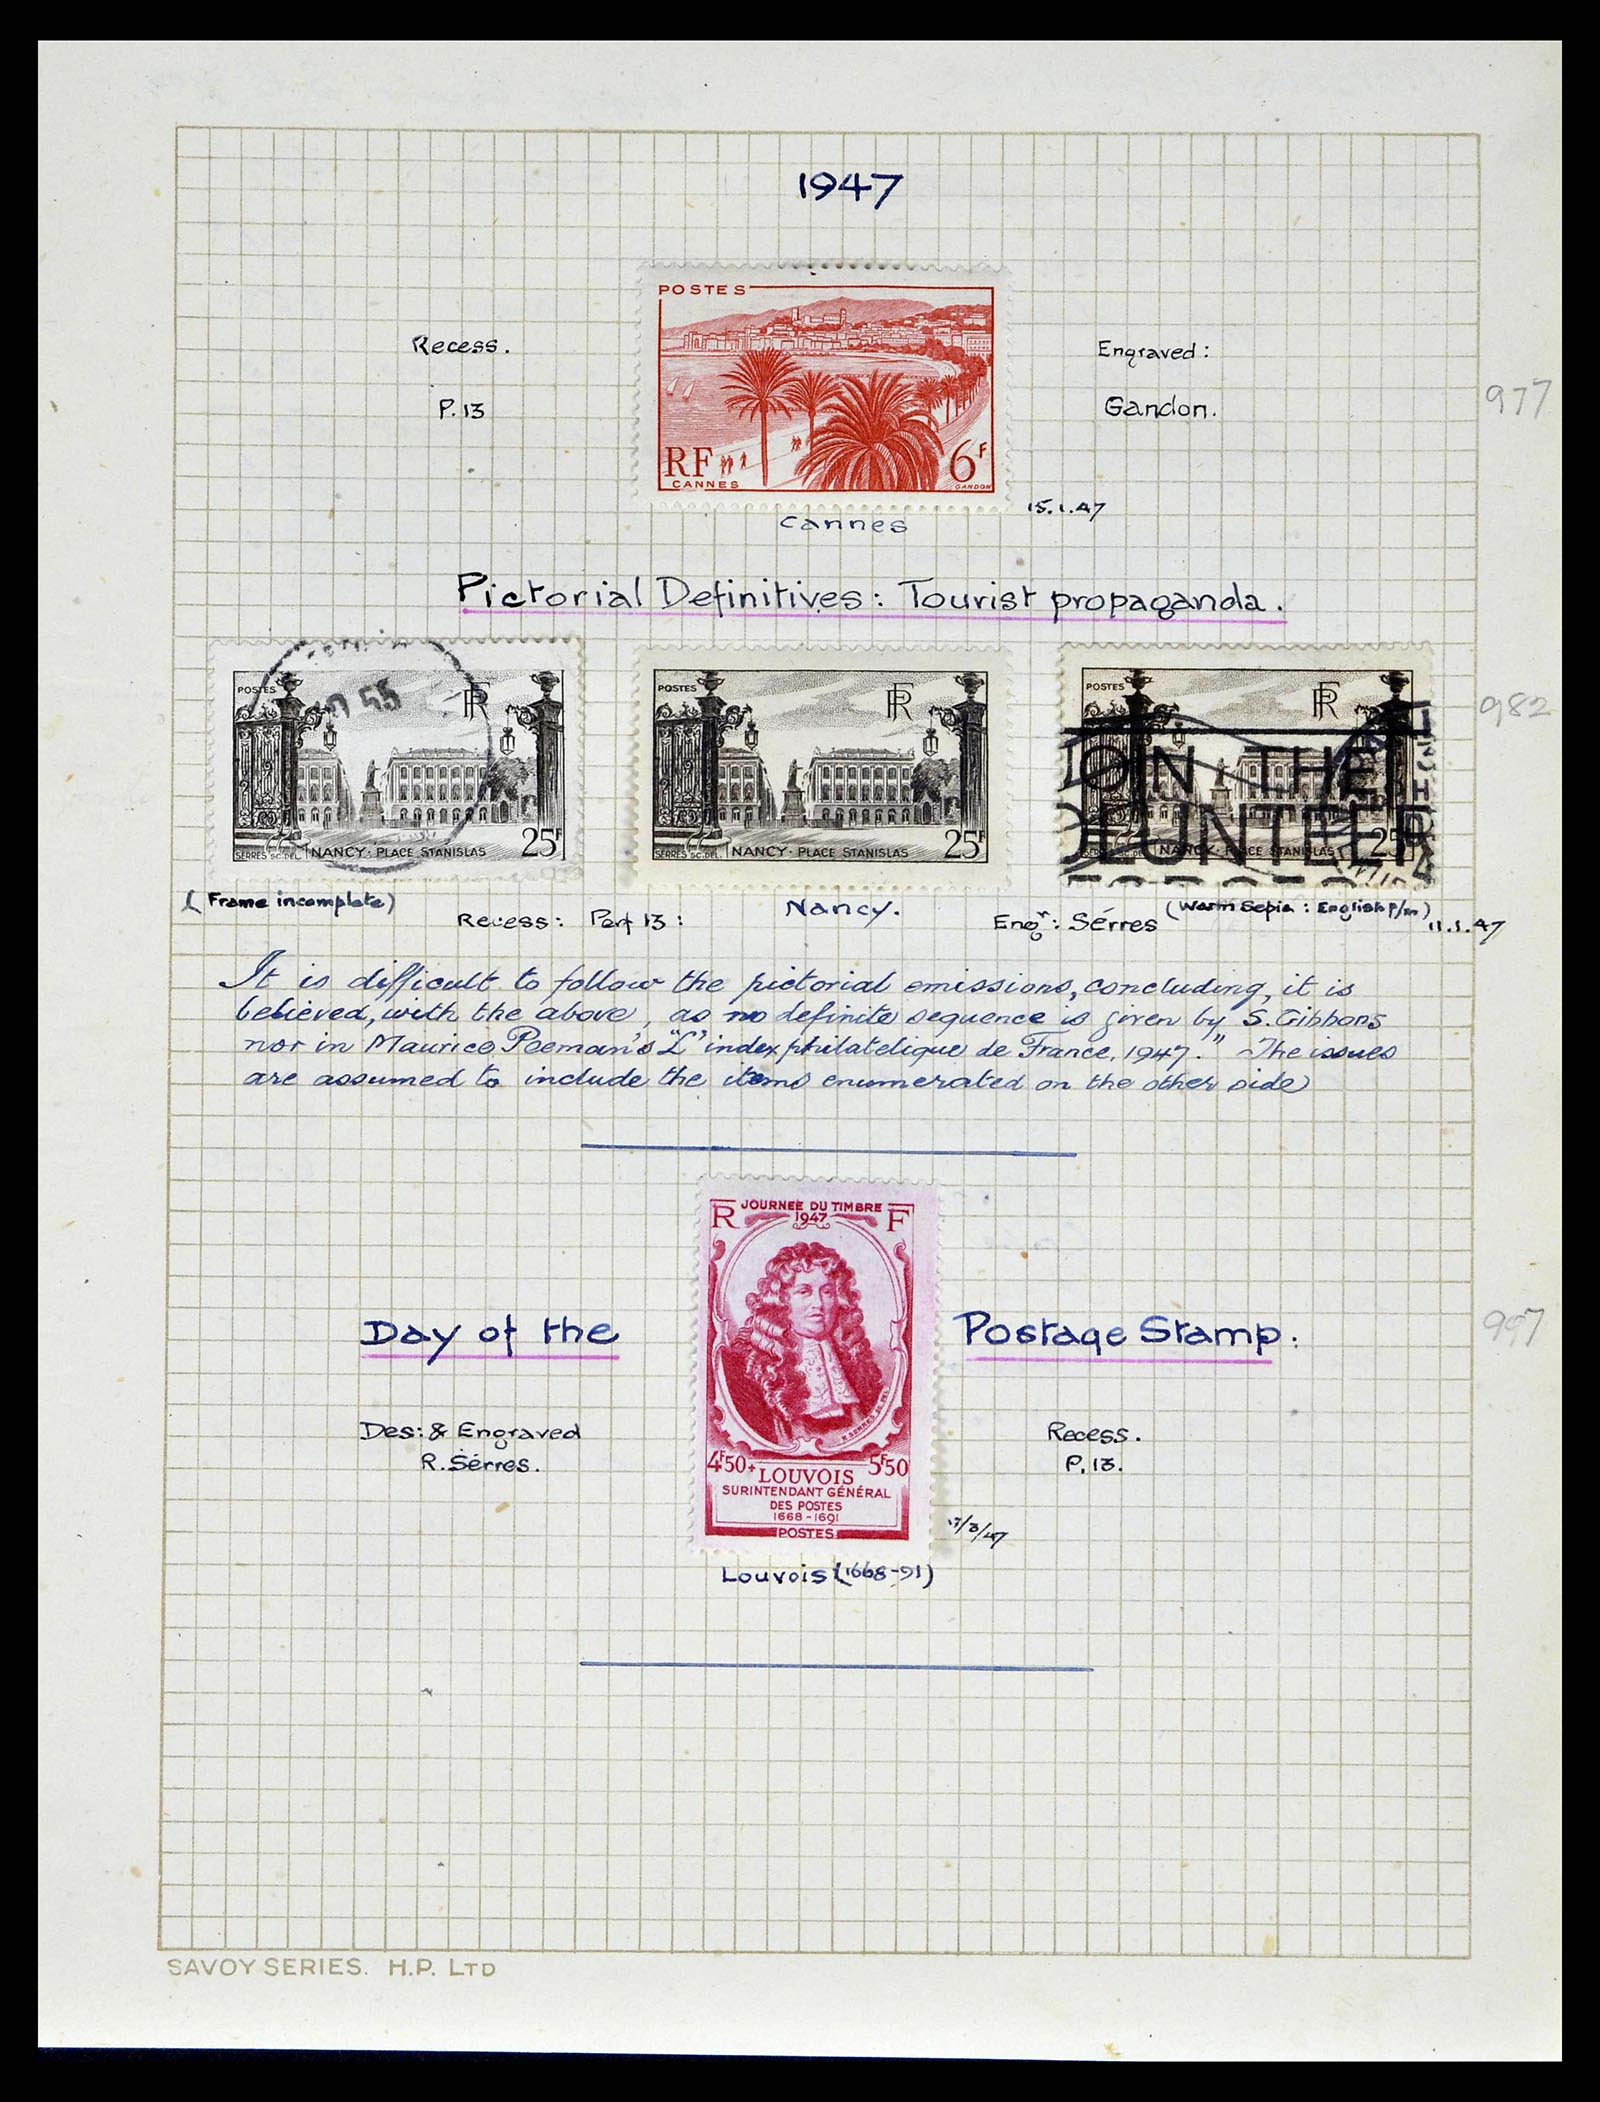 1947
POSTES
Recess.
Engraved:
P.13
Gandon.
977
RF
6F
CANNES
GANDON
15.1.47
Cannes
Pictorial Definitives: Tourist propaganda.
POSTES
RF
55
25F
SERRES SC.DEL. NANCY·PLACE STANISLAS
POSTES
RF
25F
SERRES SC.DEL. NANCY·PLACE STANISLAS
POSTES
RF
ON THE
OLUNTEER
25
NANCY·PLACE STANISLAS
982
(Frame incomplete)
Recess: Perf 13:
Nancy.
Engr: Sérres
(Warm Sepia: English P/m)
It is difficult to follow the pictorial emissions, concluding, it is
believed, with the above, as no definite sequence is given by S. Gibbons
nor in Maurice "L'index philatelique de France, 1947." The issues
are assumed to include the items enumerated on the other side
R JOURNEE DU TIMBRE F
1947
Day of the
Postage Stamp:
997
Des: & Engraved
R. Sérres.
Recess.
P.13.
4F50+ 5F50
LOUVOIS
SURINTENDANT GÉNÉRAL
DES POSTES
1668-1691
POSTES
Louvois (1668-91)
SAVOY SERIES. H.P. LTD